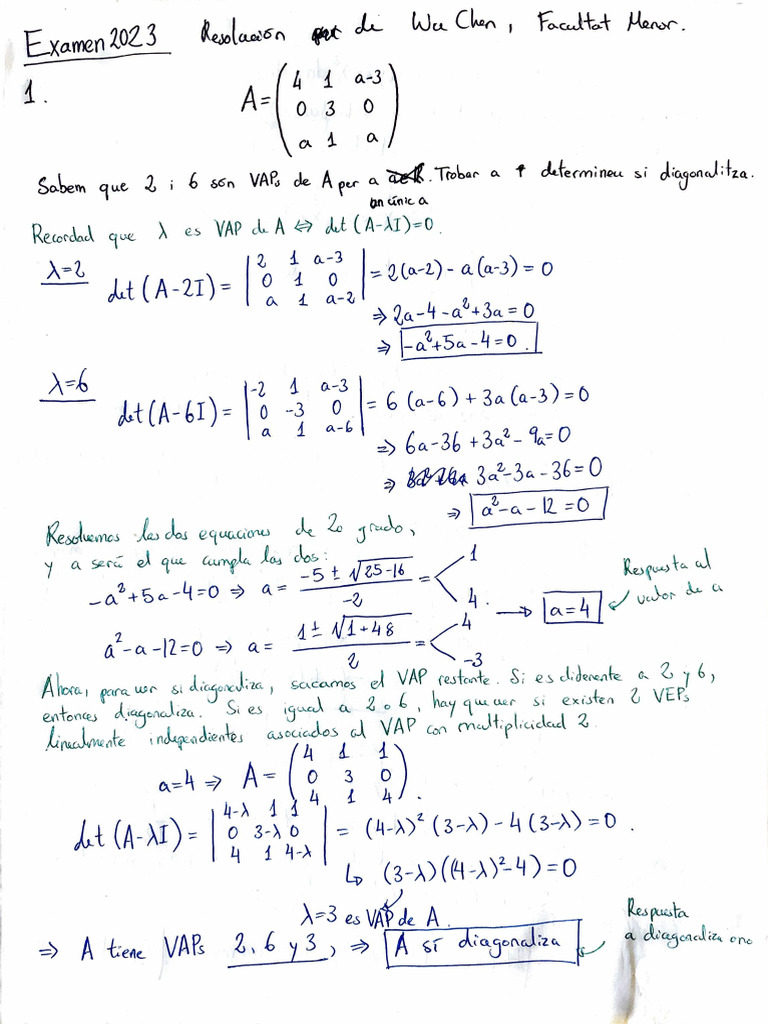 Examen 2023 Resolución de Wu Chen, Facultat Menor.
1. A = ( 4 1 a-3
0 3 0
a 1 a )
Sabem que 2 i 6 són VAPs de A per a. Trobar a i determineu si diagonalitza.
un únic a
Recordad que λ es VAP de A ⇔ det (A-λI)=0.
λ=2 det (A-2I) = | 2 1 a-3
0 1 0
a 1 a-2 | = 2(a-2) - a(a-3) = 0
⇒ 2a-4-a²+3a=0
⇒ -a²+5a-4=0.
λ=6 det (A-6I) = | -2 1 a-3
0 -3 0
a 1 a-6 | = 6(a-6) + 3a(a-3) = 0
⇒ 6a-36+3a²-9a=0
⇒ 3a²-3a-36=0
⇒ a²-a-12=0
Resolvemos las dos equaciones de 2o grado,
y a será el que cumpla las dos:
-a²+5a-4=0 ⇒ a = (-5 ± √25-16) / -2 = 1
4.
a²-a-12=0 ⇒ a = (1 ± √1+48) / 2 = 4
-3
→ a=4
Respuesta al
valor de a
Ahora, para ver si diagonaliza, sacamos el VAP restante. Si es diderente a 2 y 6,
entonces diagonaliza. Si es igual a 2 o 6, hay que ver si existen 2 VEPs
linealmente independientes asociados al VAP con multiplicidad 2.
a=4 ⇒ A = ( 4 1 1
0 3 0
4 1 4 ).
det (A-λI) = | 4-λ 1 1
0 3-λ 0
4 1 4-λ | = (4-λ)² (3-λ) - 4(3-λ) = 0.
↳ (3-λ)((4-λ)²-4) = 0
λ=3 es VAP de A.
⇒ A tiene VAPs 2, 6 y 3, ⇒ A SÍ diagonaliza
Respuesta
a diagonaliza o no